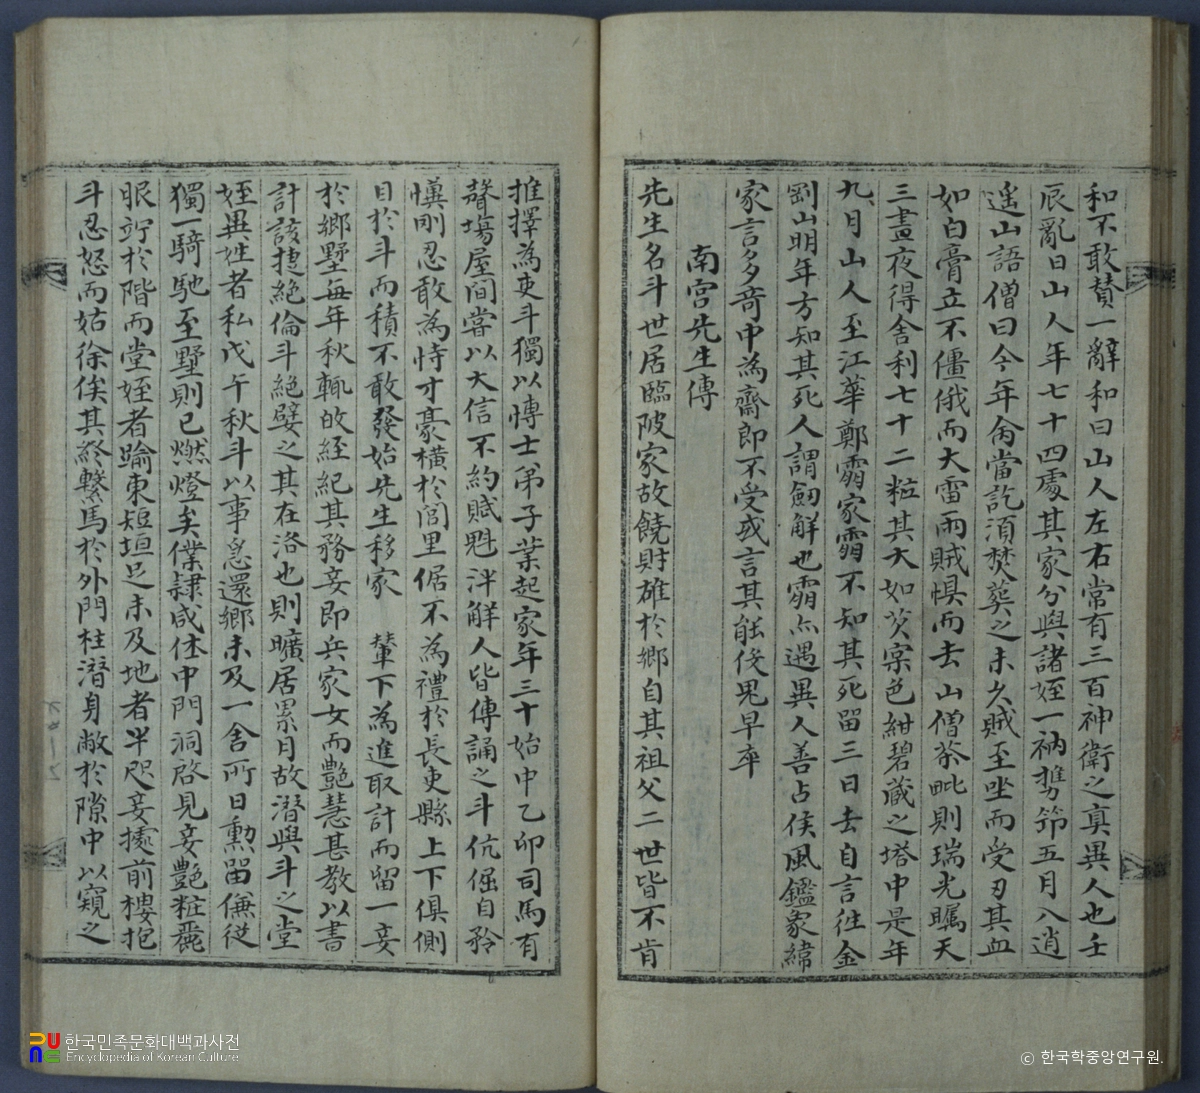 和不敢賛一辭和曰山人左右常有三百神衛之真異人也壬
辰亂日山人年七十四處其家分與諸姪一衲携筇五月入逍
遥山語僧曰今年命當訖須焚葬之未久賊至坐而受刃其血
如白膏立不僵俄而大雷雨賊惧而去山僧茶毗則瑞光矚天
三晝夜得舍利七十二粒其大如芡宲色紺碧蔵之塔中是年
九月山人至江華鄭䨪家䨪不知其死留三日去自言往金
剛山明年方知其死人謂劒解也䨪亦遇異人善占侯風鑑象緯
家言多奇中為齋郎不受或言其能伇鬼早卒
南宮先生傳
先生名斗世居臨陂家故饒財雄於鄉自其祖父二世皆不肯
推擇為吏斗獨以愽士弟子業起家年三十始中乙卯司馬有
聲塲屋間嘗以大信不約賦魁泮解人皆傳誦之斗伉倔自矜
慎剛忍敢為恃才豪橫於閭里倨不為禮於長吏縣上下俱側
目於斗而積不敢發始先生移家 輦下為進取計而留一妾
於鄉墅每年秋輒㱕経紀其務妾即兵家女而艶慧甚教以書
計該捷絶倫斗絶嬖之其在洛也則曠居累月故潛與斗之堂
姪異姓者私戊午秋斗以事急還鄉未及一舍所日勲留傔從
獨一騎馳至墅則已燃燈矣僕隷咸休中門洞啓見妾艶粧麗
眼竚於階而堂姪者踰東短垣足未及地者半咫妾攄前摟抱
斗忍怒而姑徐俟其終繫馬於外門柱潛身敝於隙中以窺之
한국민족문화대백과사전
Encyclopedia of Korean Culture
ⓒ 한국학중앙연구원.